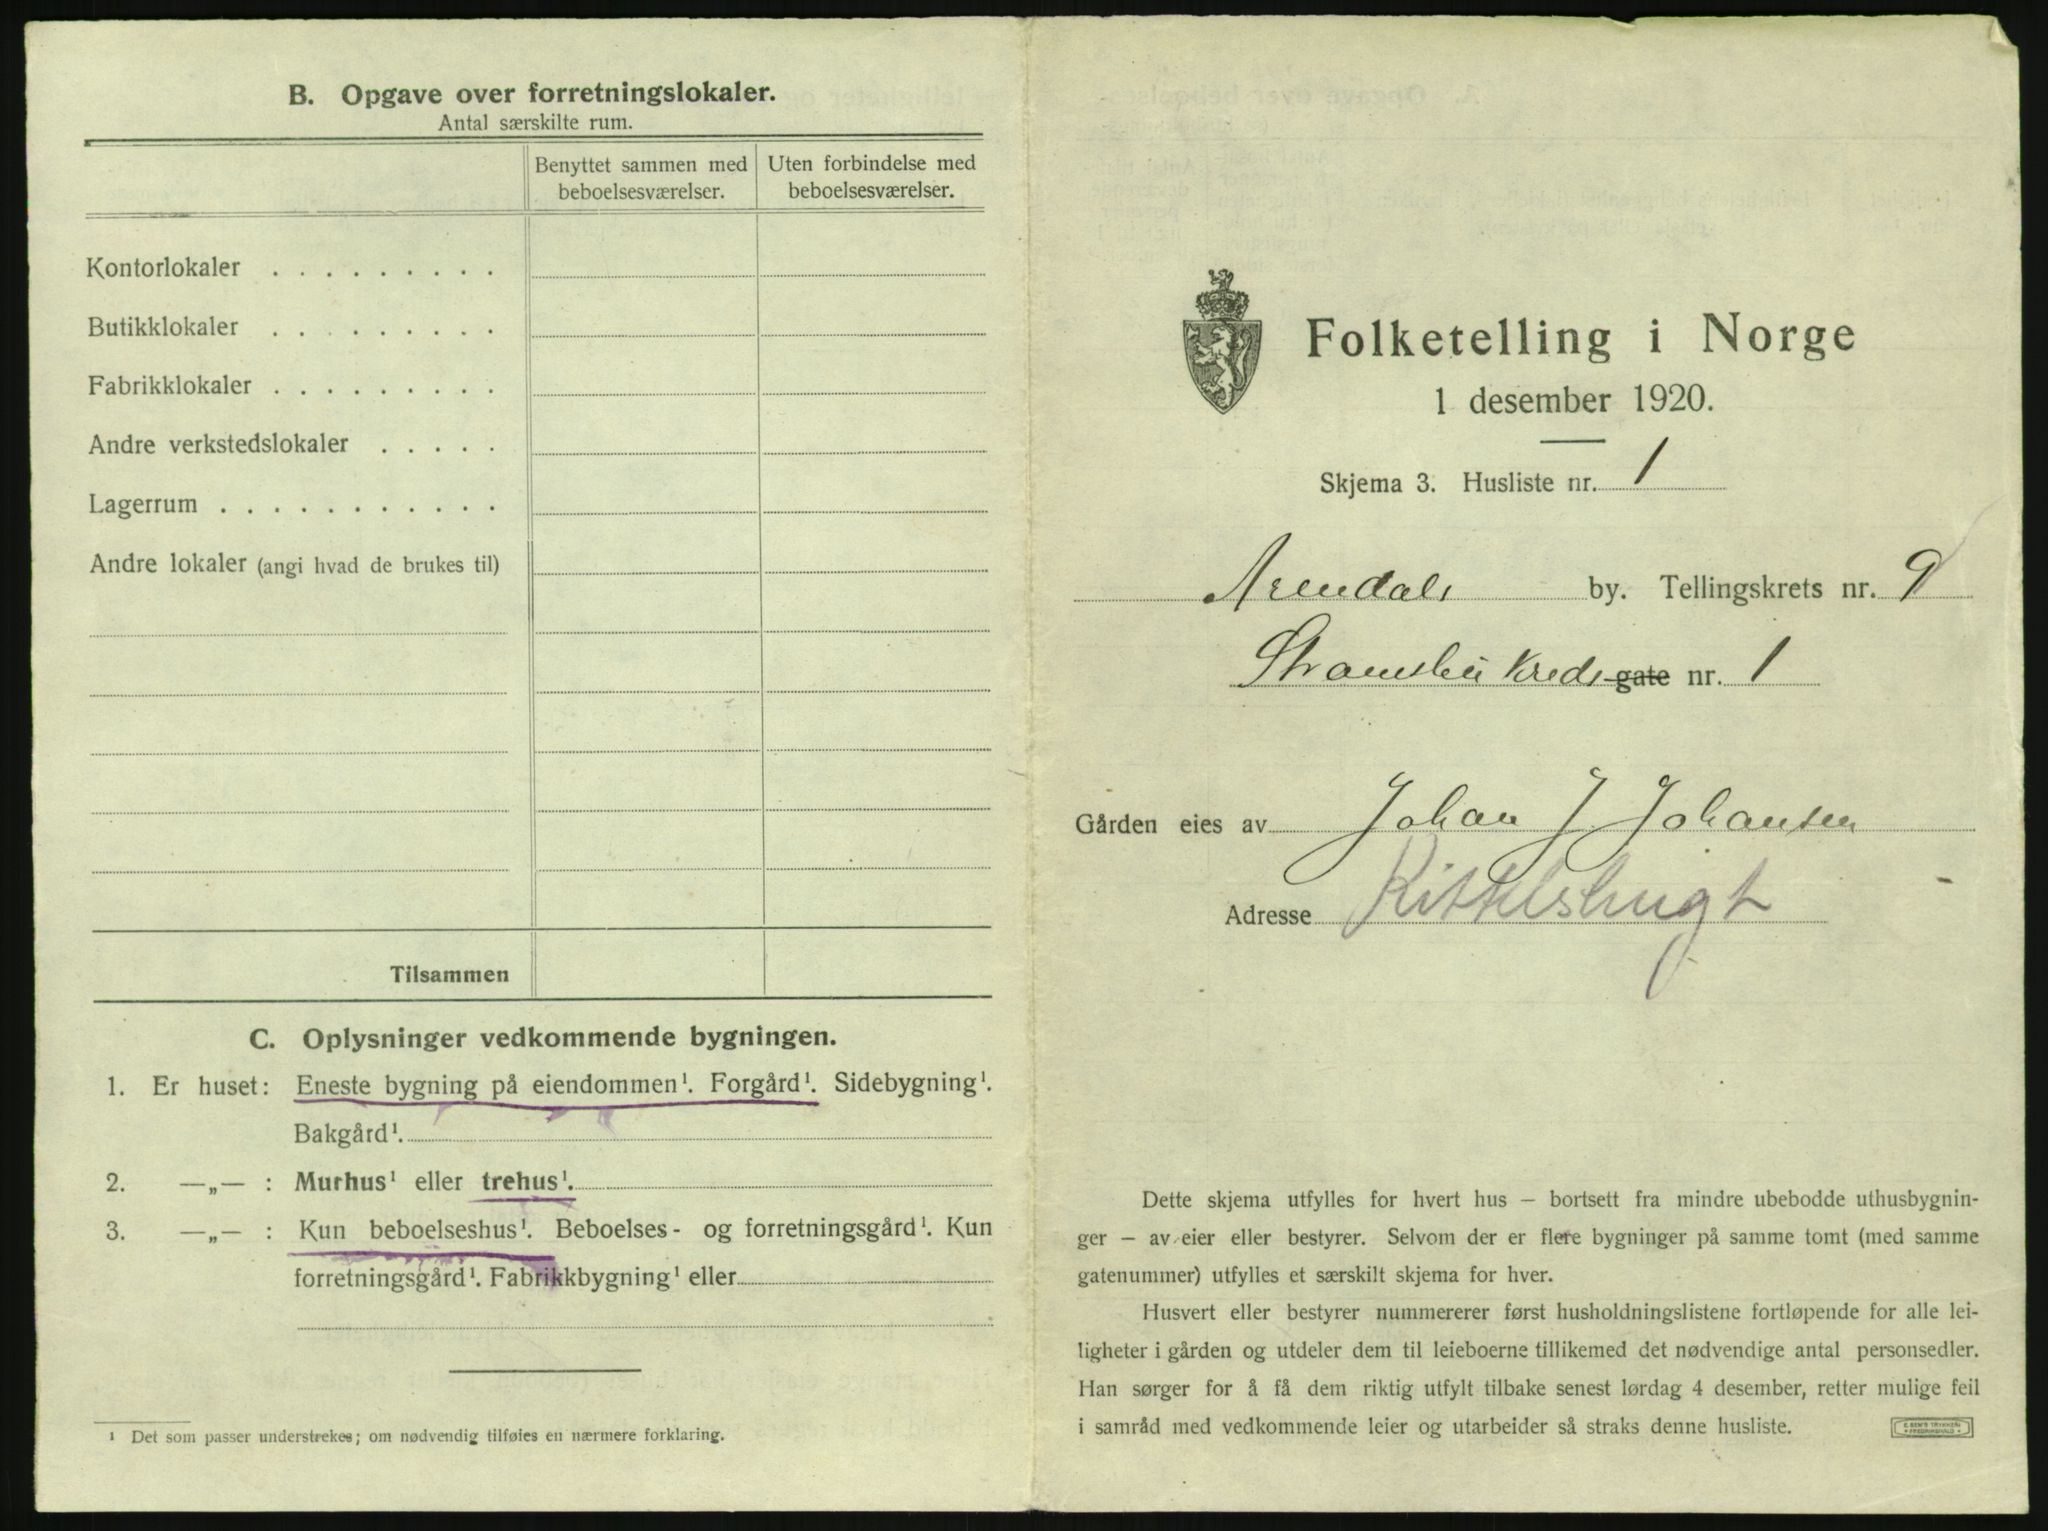 B. Opgave over forretningslokaler.
Antal særskilte rum.
Benyttet sammen med beboelsesværelser.
Uten forbindelse med beboelsesværelser.
Kontorlokaler . . . . . . . . .
Butikklokaler . . . . . . . . .
Fabrikklokaler . . . . . . . . .
Andre verkstedslokaler . . . . .
Lagerrum . . . . . . . . . . .
Andre lokaler (angi hvad de brukes til)
Tilsammen
C. Oplysninger vedkommende bygningen.
1. Er huset: Eneste bygning på eiendommen¹. Forgård¹. Sidebygning¹.
Bakgård¹.
2. —„— : Murhus¹ eller trehus¹.
3. —„— : Kun beboelseshus¹. Beboelses- og forretningsgård¹. Kun
forretningsgård¹. Fabrikkbygning¹ eller
¹ Det som passer understrekes; om nødvendig tilføies en nærmere forklaring.
Folketelling i Norge
1 desember 1920.
Skjema 3. Husliste nr. 1
Arendals by. Tellingskrets nr. 9
Strømsbu Kreds gate nr. 1
Gården eies av Johan J. Johansen
Adresse
Dette skjema utfylles for hvert hus – bortsett fra mindre ubebodde uthusbygnin-
ger – av eier eller bestyrer. Selvom der er flere bygninger på samme tomt (med samme
gatenummer) utfylles et særskilt skjema for hver.
Husvert eller bestyrer nummererer først husholdningslistene fortløpende for alle lei-
ligheter i gården og utdeler dem til leieboerne tillikemed det nødvendige antal personsedler.
Han sørger for å få dem riktig utfylt tilbake senest lørdag 4 desember, retter mulige feil
i samråd med vedkommende leier og utarbeider så straks denne husliste.